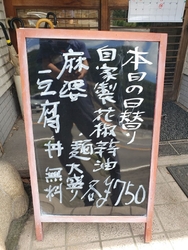 本日の日替り
自家製花椒辣油
麺大盛り 各¥750
麻婆
豆腐丼 無料